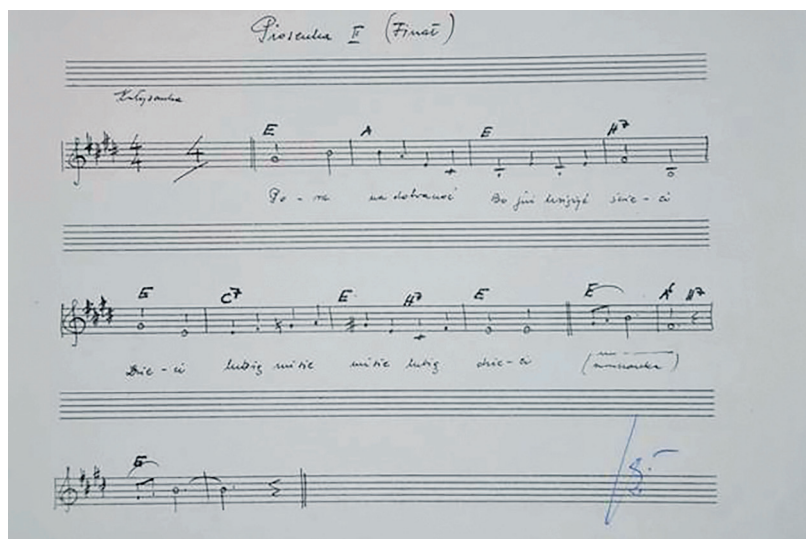 Piosenka II (Finał)
Kołysanka
E A E H7
4 4 4
Po - ra na dobranoc Bo już księżyc świe - ci
E C7 E H7 E E A6 H7
Dzie - ci lubią misie misie lubią dzie - ci (mruczanka)
E